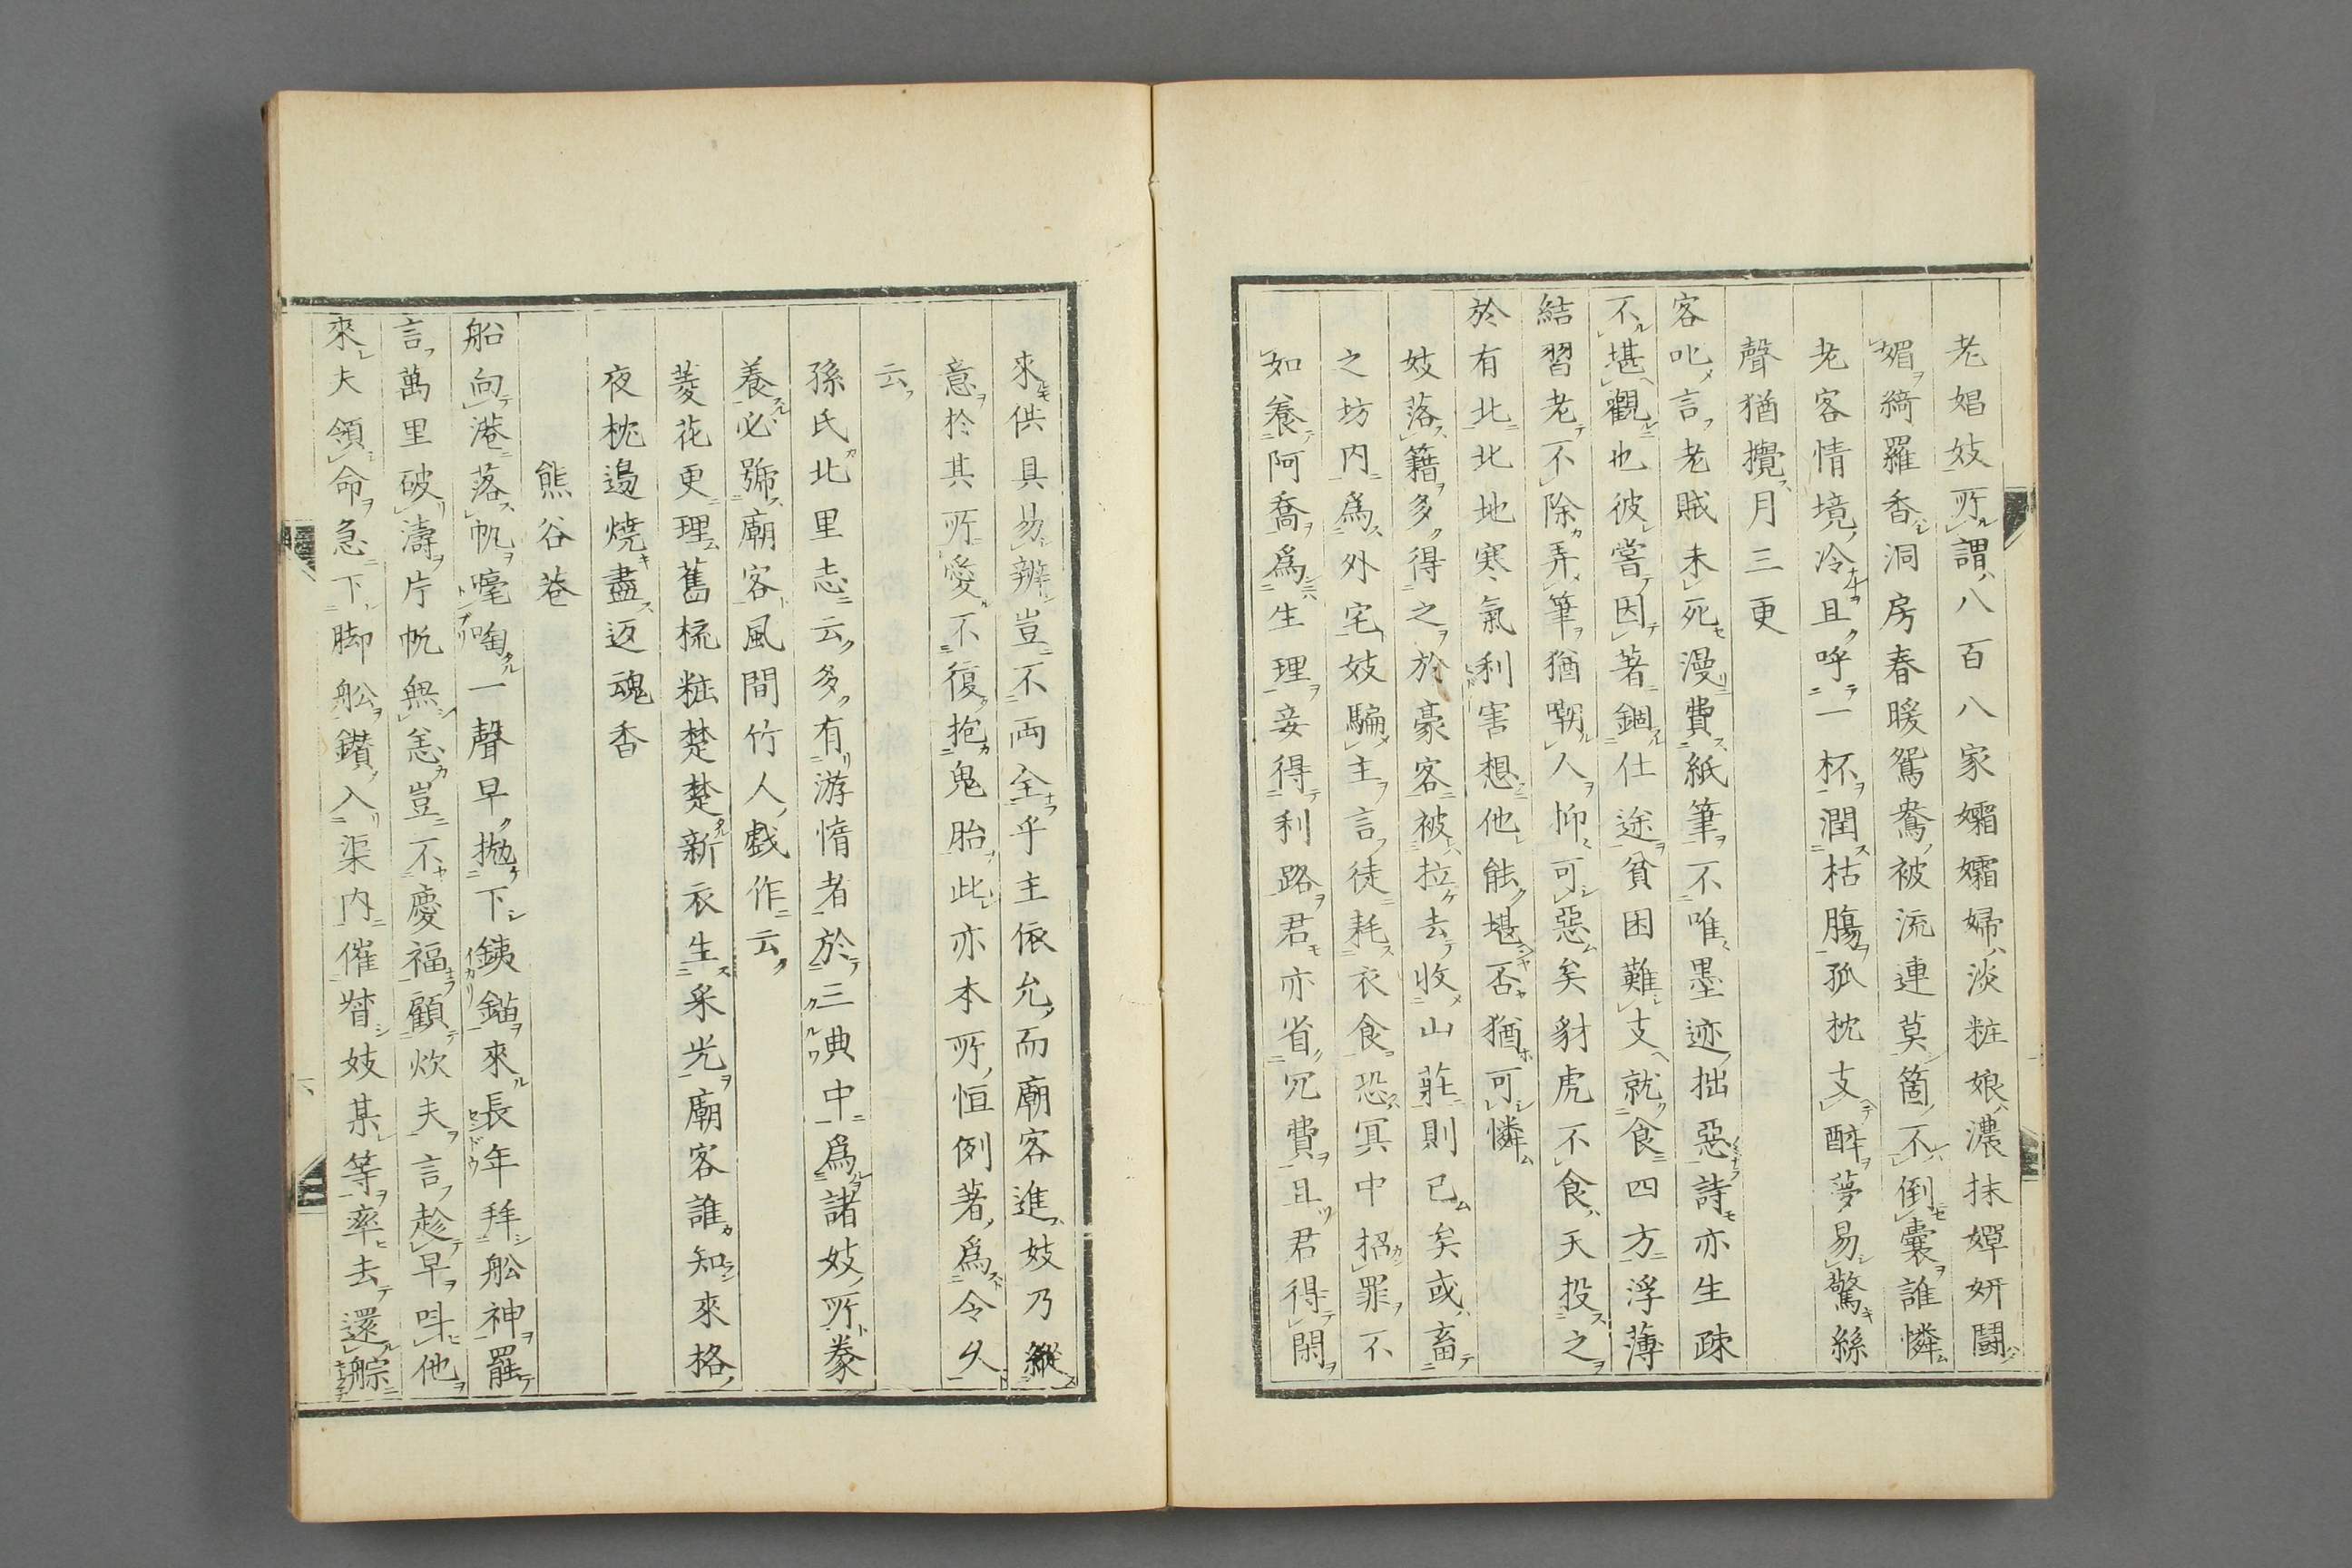 老娼妓所謂八百八家孀孀婦淡粧娘濃抹嬋妍鬪
媚綺羅香洞房春暖鴛鴦被流連莫箇不倒囊誰憐
老客情境冷且呼一杯潤枯腸孤枕支醉夢易驚絲
聲猶攪月三更
客叱言老賊未死漫費紙筆不唯墨迹拙惡詩亦生疎
不堪觀也彼嘗因著錮仕途貧困難支就食四方浮薄
結習老不除弄筆猶嘲人抑可惡矣豺虎不食天投之
於有北北地寒氣利害想他能堪否猶可憐
妓落籍多得之於豪客被拉去收山莊則已矣或畜
之坊内爲外宅妓騙主言徒耗衣食恐冥中招罪不
如養阿喬爲生理妾得利路君亦省冗費且君得閑
來供具易辨豈不両全乎主依允而廟客進妓乃縱
意於其所愛不復抱鬼胎此亦本所恒例著爲令久
云
孫氏北里志云多有游惰者於三典中爲諸妓所豢
養必號廟客風間竹人戯作云
菱花更理舊梳粧楚楚新衣生釆光廟客誰知來格
夜枕邊燒盡返魂香
熊谷菴
船向港落帆嚏啕一聲早抛下銕錨來長年拜舩神罷
言萬里破濤片帆無恙豈不慶福顧炊夫言趁早呌他
來夫領命急下脚舩鑚入渠内催督妓某等率去還艅